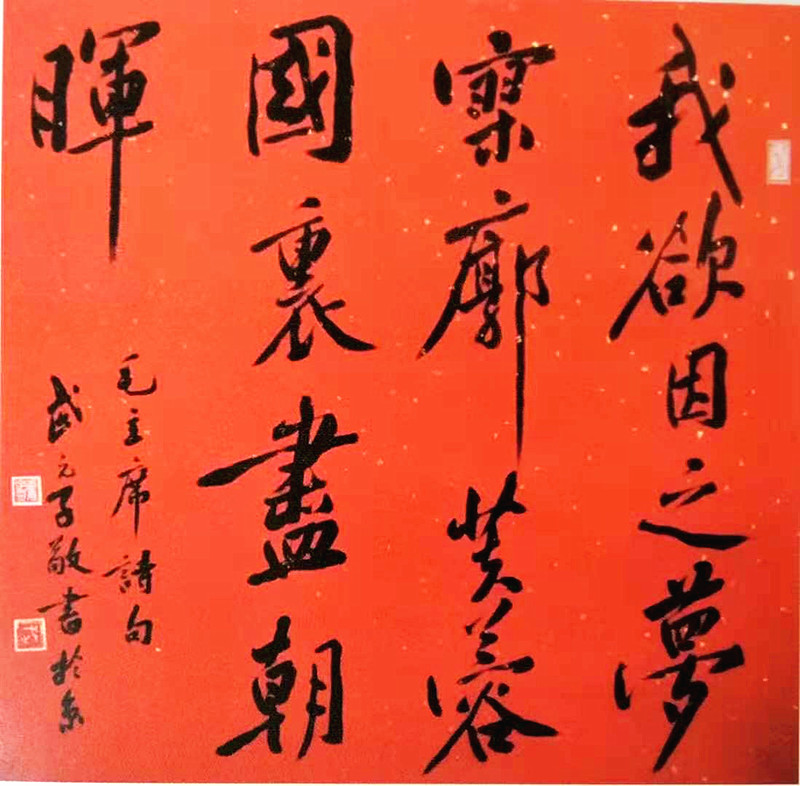 我欲因之夢
寥廓芙蓉
國裏盡朝
暉
毛主席詩句
武元子敬書於京